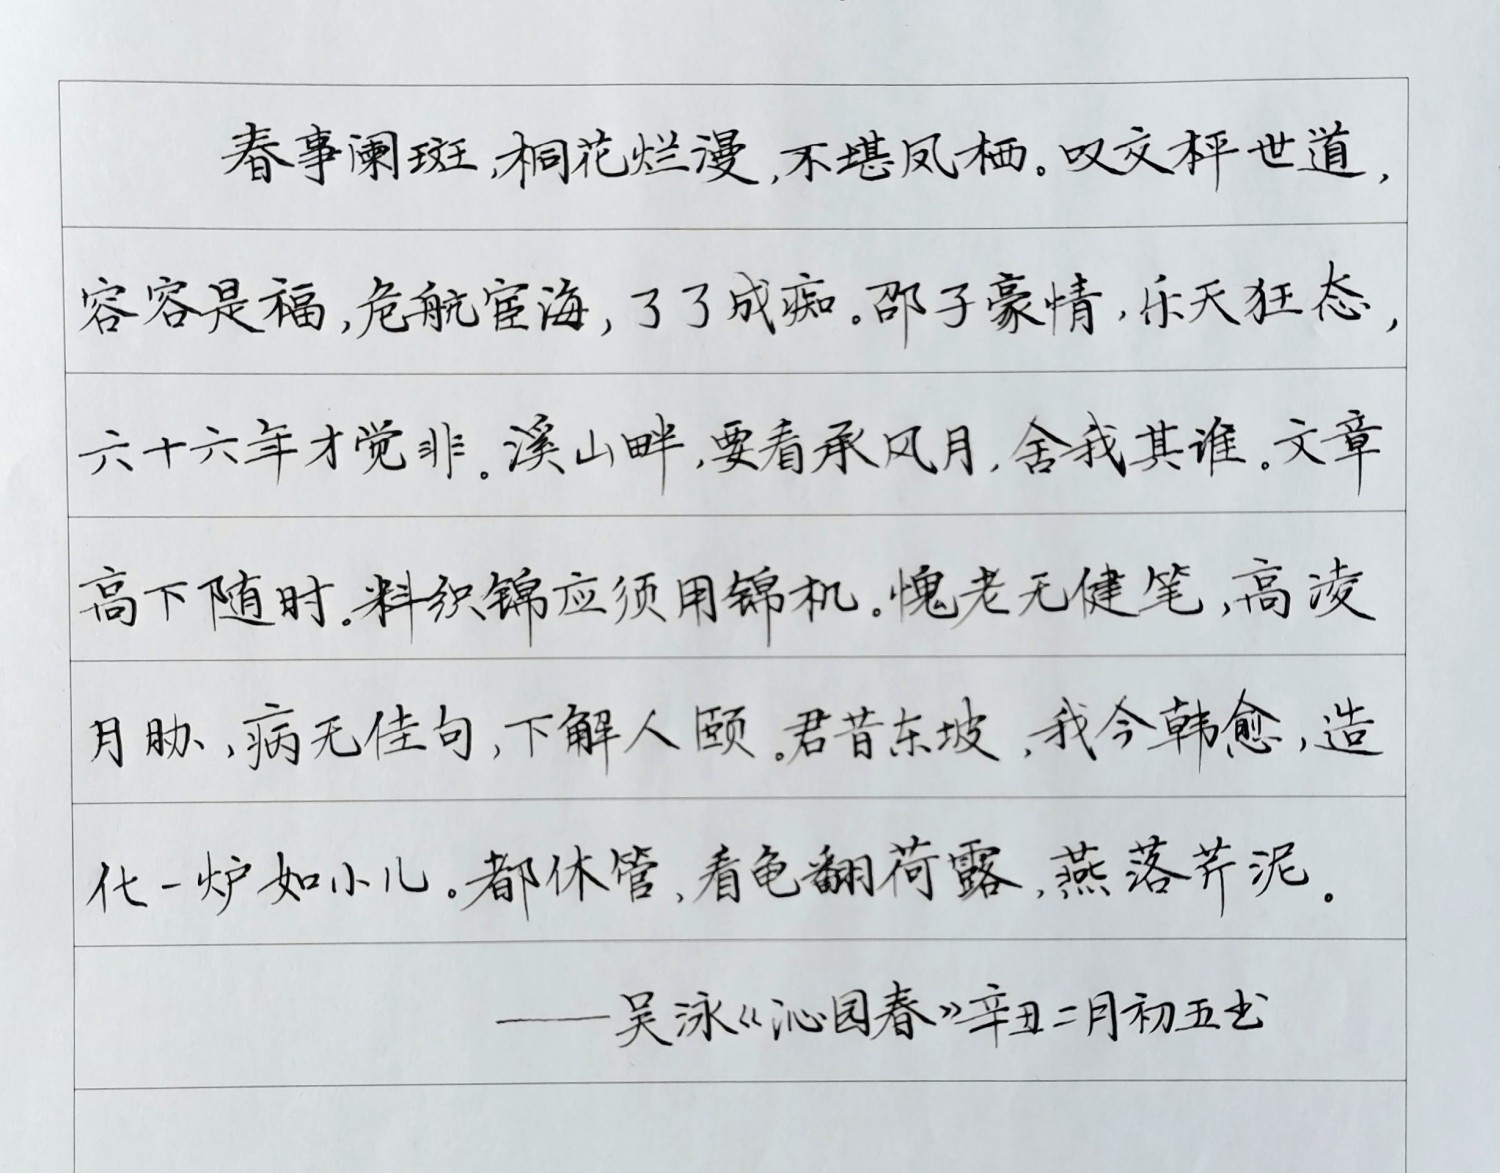 春事阑斑,桐花烂漫,不堪凤栖。叹文枰世道,
容容是福,危航宦海,了了成痴。邵子豪情,乐天狂态,
六十六年才觉非。溪山畔,要看承风月,舍我其谁。文章
高下随时。料织锦应须用锦机。愧老无健笔,高凌
月胁,病无佳句,下解人颐。君昔东坡,我今韩愈,造
化一炉如小儿。都休管,看龟翻荷露,燕落芹泥。
——吴泳《沁园春》辛丑二月初五书